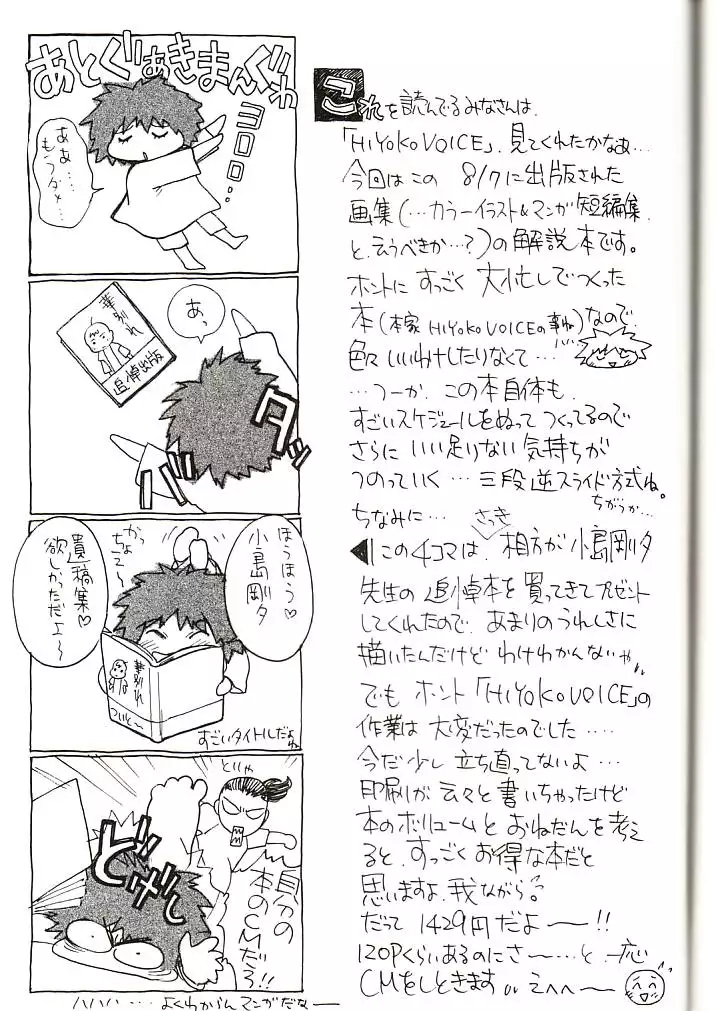 あとくぅぁきまんぐゎ
ヨロロ・・
ああ…
もうダメ…
あっ
華別れ
追悼出版
バダダ
ほうほう♡
小島剛夕
かっちょえ〜
遺稿集♡
欲しかっただよ〜
華別れ
ついと〜
すごいタイトルだよね
どいや
どげし
自分の
本のCMだろ!!
ハハハ…よくわからんマンガだな〜
これを読んでるみなさんは、
「HIYOKO VOICE」、見てくれたかなぁ…
今回はこの 8/7に出版された
画集(…カラーイラスト&マンガ短編集、
と、云うべきか…?)の解説本です。
ホントに すっごく 大忙しでつくった
本(本家 HIYOKO VOICEの事ね)なので、
色々 いいわけしたりなくて…
…つーか、この本自体も、
すごいスケジュールをぬって つくってるので
さらに いい足りない 気持ちが
つのっていく… 三段逆スライド方式ね。
ちがうか…
ちなみに…
さっき
◀この4コマは、相方が小島剛夕
先生の 追悼本を 買ってきて プレゼント
してくれたので、あまりの うれしさに
描いたんだけど わけわかんないや〃
でも ホント「HIYOKO VOICE」の
作業は 大変だったのでした…
今だ少し 立ち直ってないよ…
印刷が 云々と 書いちゃったけど
本のボリュームと おねだんを 考え
ると、すっごく お得な本だと
思いますよ、我ながら。
だって 1429円だよ〜!!
120Pくらいあるのにさ〜…と、一応
CMをしときます えへへ〜